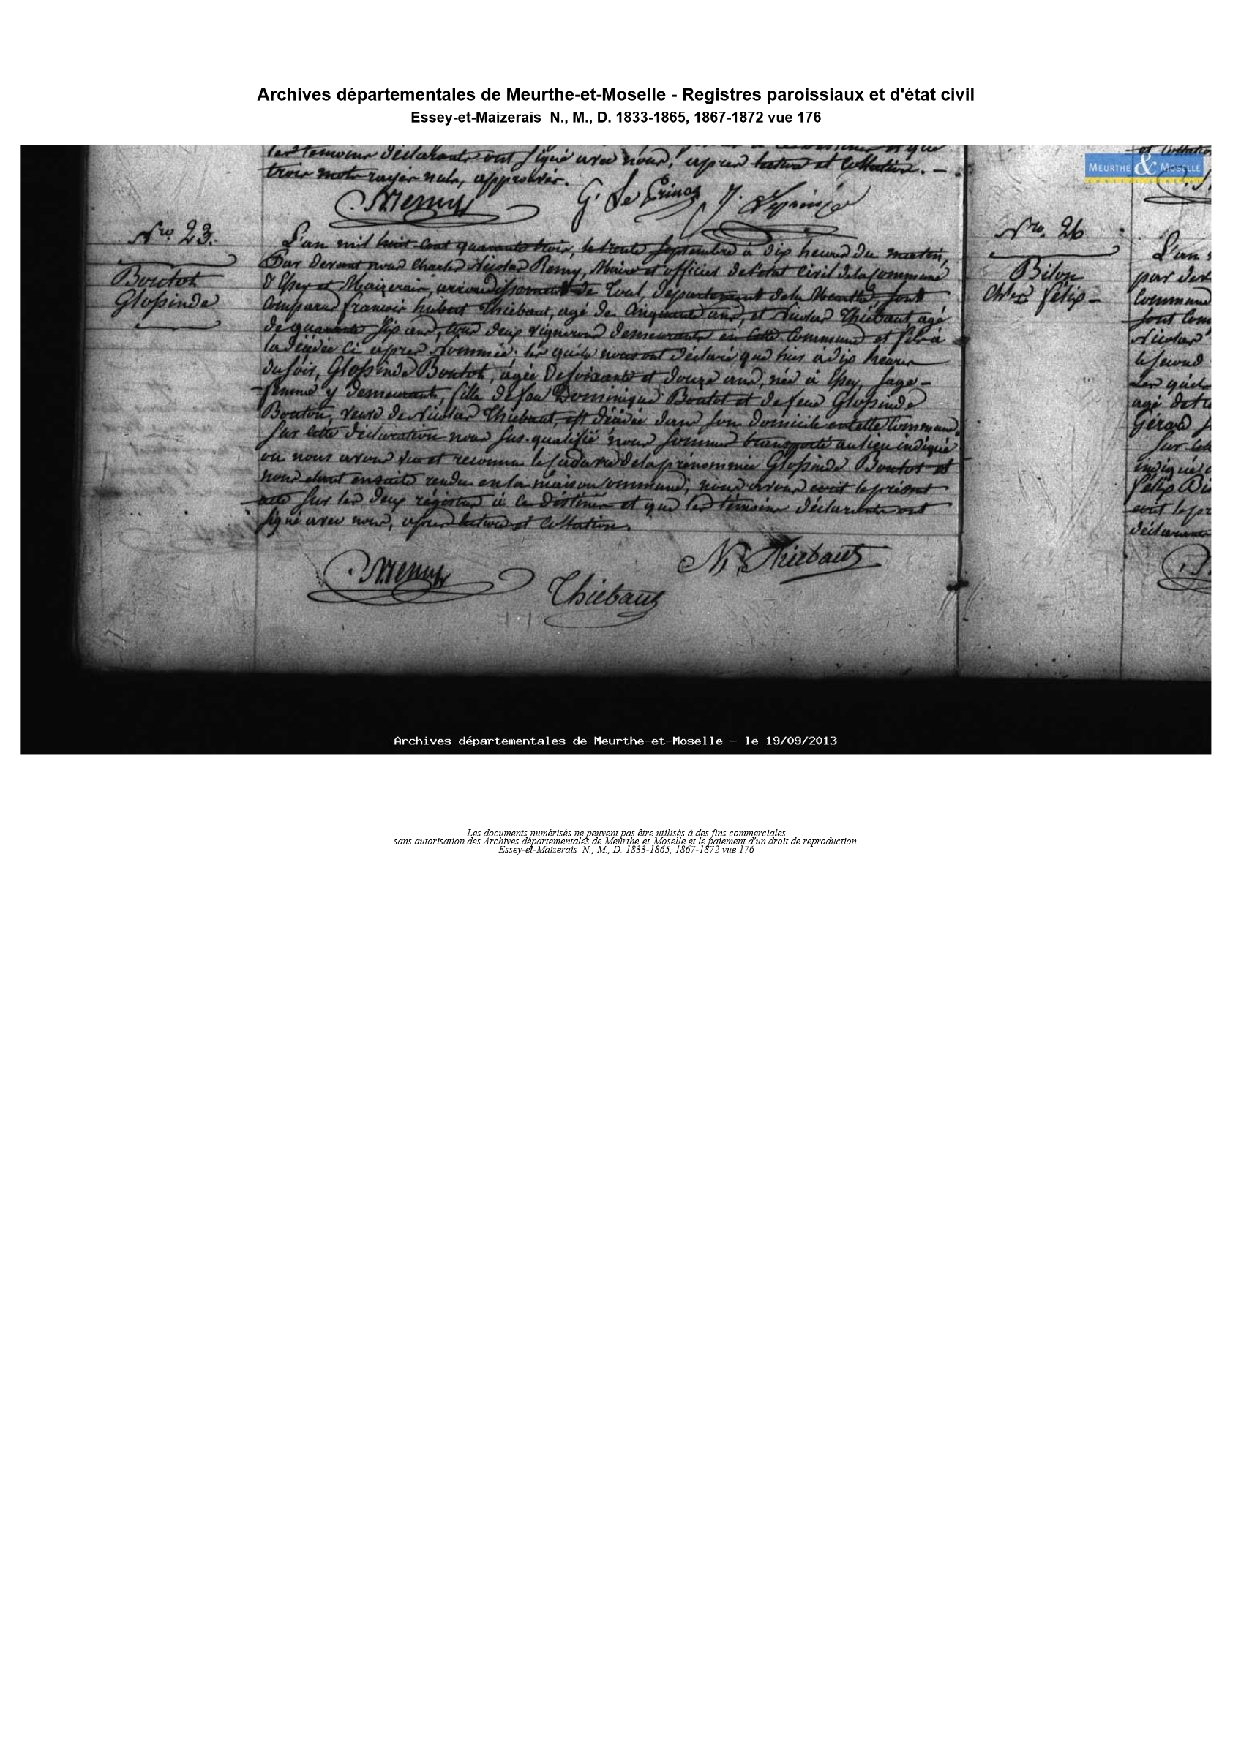 Archives départementales de Meurthe-et-Moselle - Registres paroissiaux et d'état civil
Essey-et-Maizerais N., M., D. 1833-1865, 1867-1872 vue 176
les témoins déclarants ont signé avec nous, après lecture et collation. -
trois mots rayés nuls, approuvés.
Remy G. Le Prince J. Leprince
MEURTHE & MOSELLE
Nro 23.
Boutot
Glossinde
L'an mil huit cent quarante trois, le trente septembre à dix heures du matin,
Par devant nous Charles Nicolas Remy, Maire et officier de l'état civil de la commune
d'Essey et Maizerais, arrondissement de Toul, département de la Meurthe, sont
comparus françois hubert Thiébaut, agé de cinquante ans, et Nicolas Thiébaut, agé
de quarante six ans, tous deux vignerons demeurants en cette commune et fils à
la décédée ci après nommée. les quels nous ont déclaré que hier à dix heures
du soir, Glossinde Boutot, agée de soixante et douze ans, née à Essey, sage-
femme y demeurant, fille de feu Dominique Boutot et de feue Glossinde
Bouton, veuve de Nicolas Thiébaut, est décédée dans son domicile en cette commune.
Sur cette déclaration nous sus-qualifié nous sommes transporté au lieu indiqué
où nous avons vu et reconnu le cadavre de la prénommée Glossinde Boutot et
nous étant ensuite rendu en la maison commune, nous avons écrit le présent
acte sur les deux régistres à ce destinés et que les témoins déclarants ont
signé avec nous, après lecture et collation.
Remy Thiébaut N. Thiébaut
Nro. 26
Bilon
Felix -
L'an
par dev
commune
sont com
Nicolas
le second
Les quel
agé de
Gérard
Sur cet
indiqué
félix Bi
écrit le pr
déclarants
Archives départementales de Meurthe-et-Moselle - le 19/09/2013
Les documents numérisés ne peuvent pas être utilisés à des fins commerciales
sans autorisation des Archives départementales de Meurthe et Moselle et le paiement d'un droit de reproduction
Essey-et-Maizerais N., M., D. 1833-1865, 1867-1872 vue 176